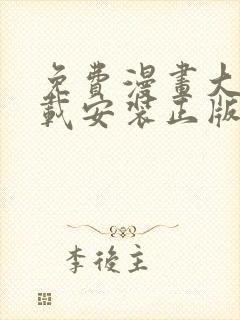 免費漫畫大
載安裝正版
李後主